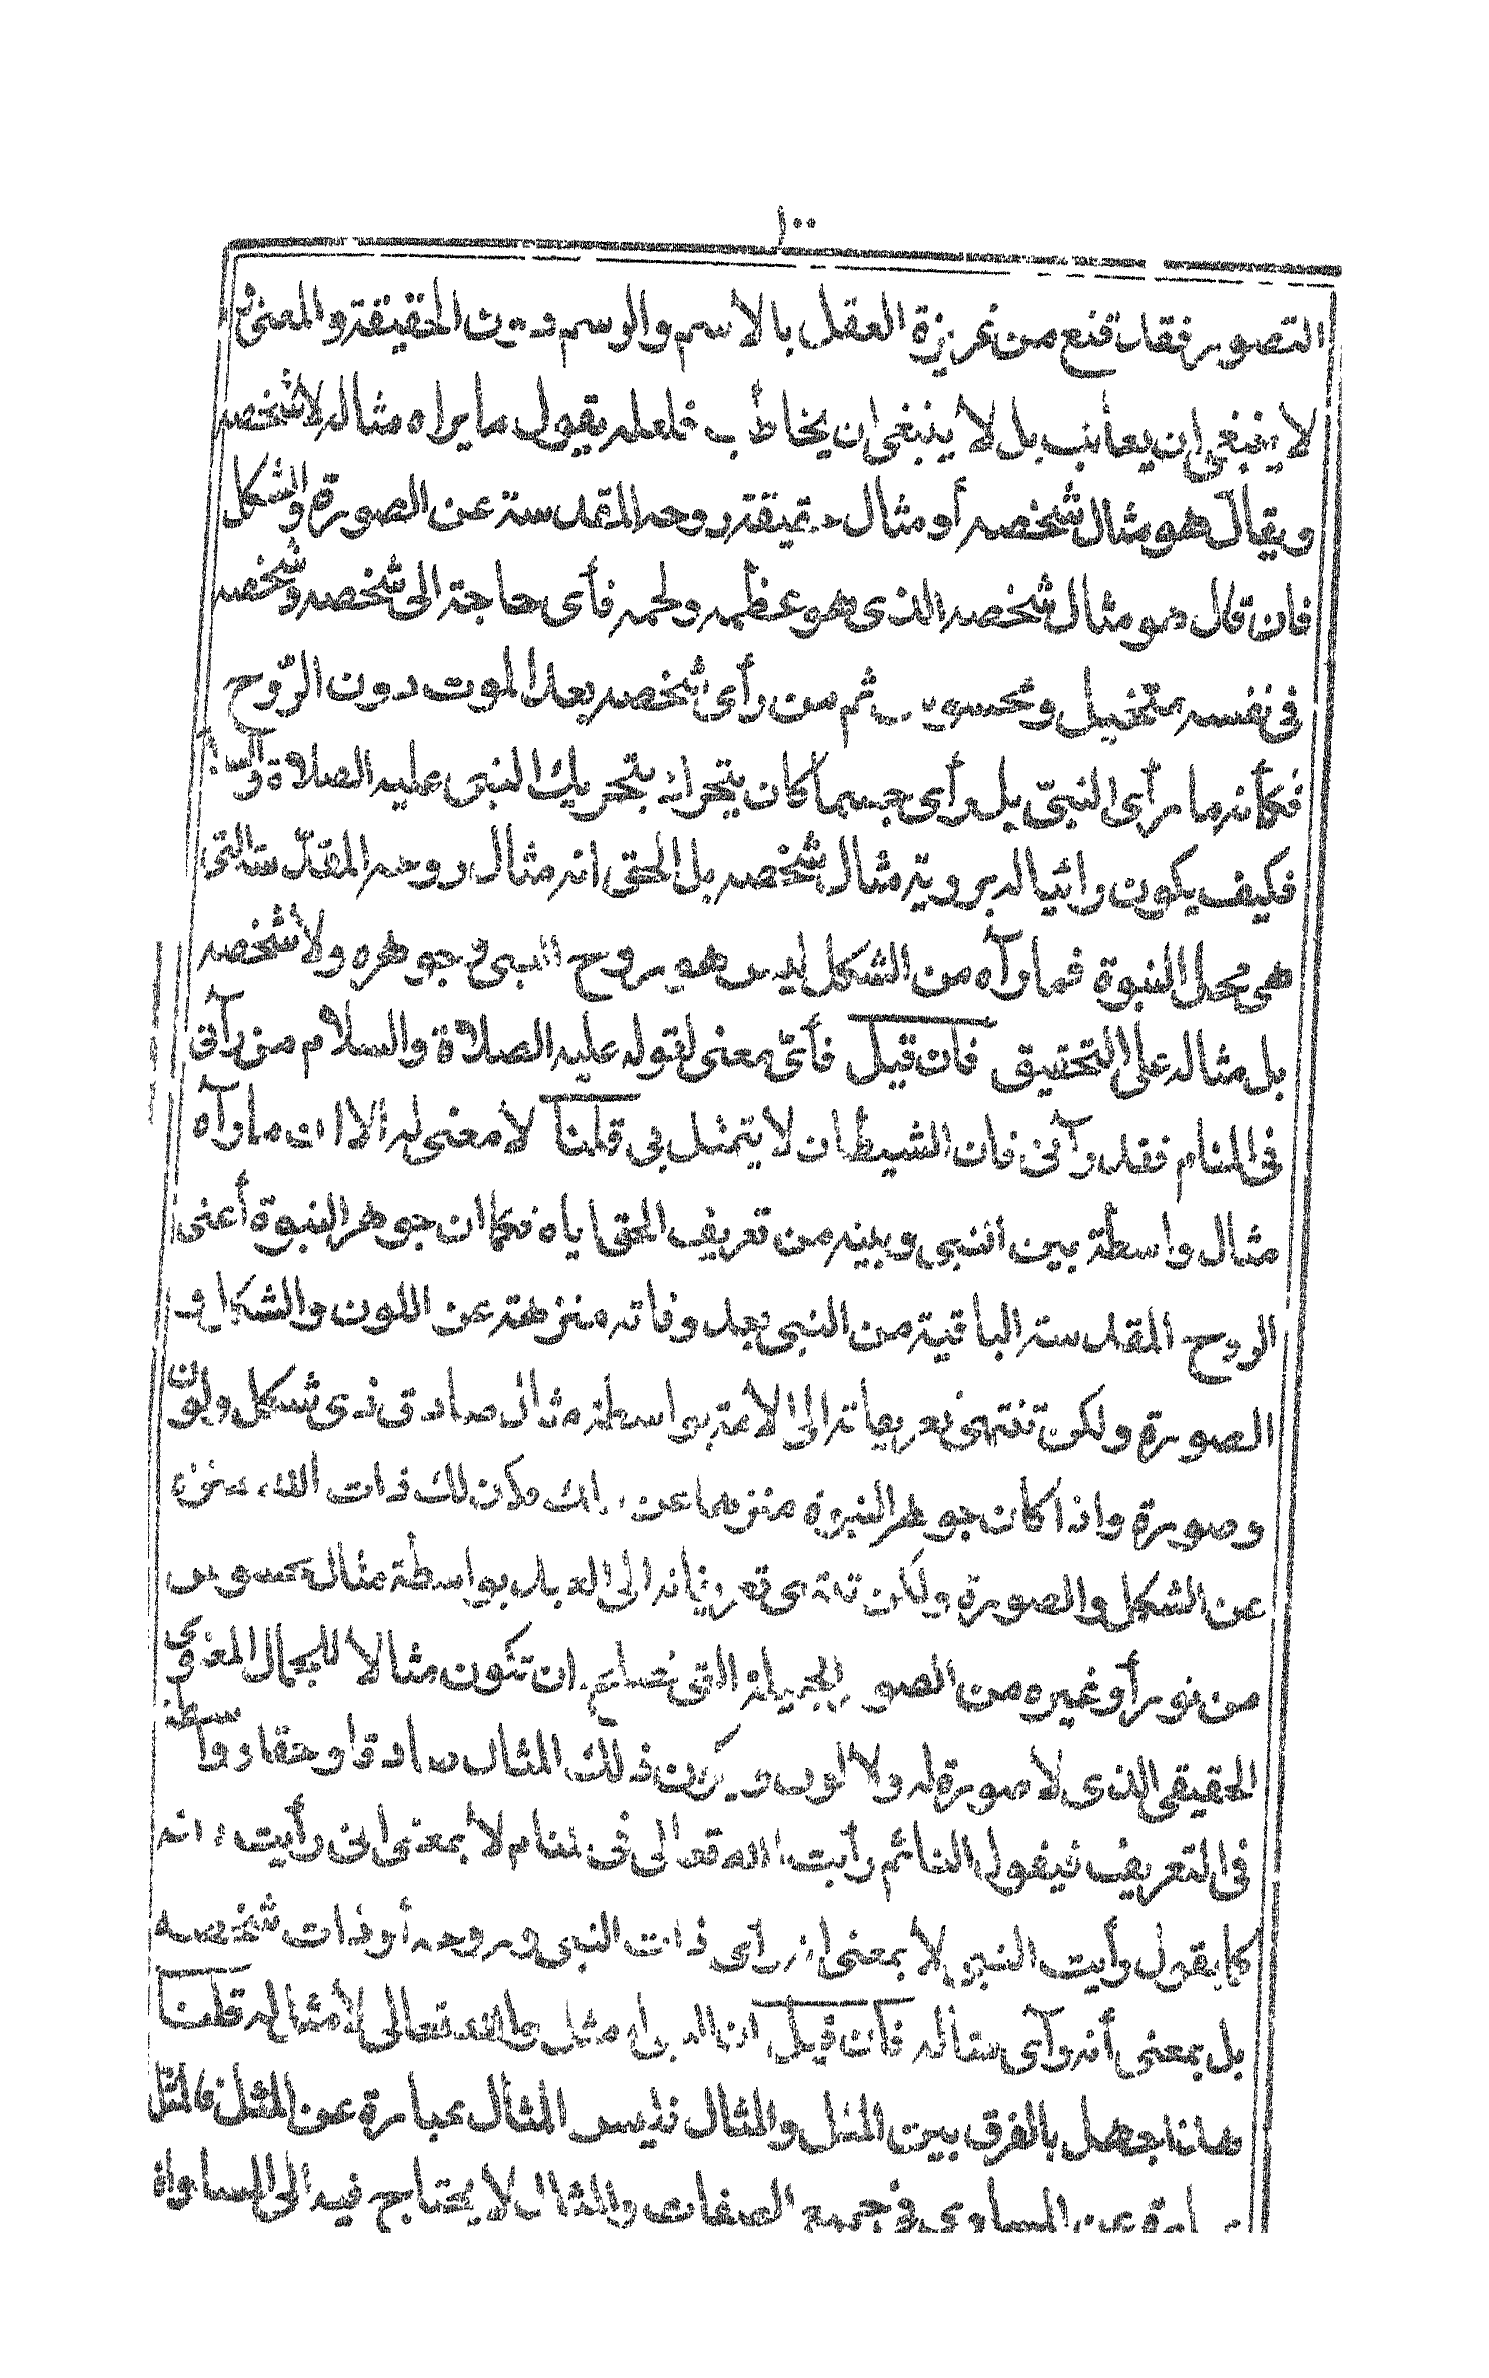 ١٠٠
التصور فقد قنع من غريزة العقل بالاسم والوسم دون الحقيقة والمعنى ثم
لا ينبغي ان يعاتب بل لا ينبغى ان يخاطب فلعله يقول ما يراه مثاله لا شخصه
ويقال هو مثال شخصه أو مثال حقيقة روحه المقدسة عن الصورة والشكل
فان قال هو مثال شخصه الذى هو عظمه ولحمه فأى حاجة الى شخصه وشخصه
فى نفسه متخيل ومحسوس ثم من رأى شخصه بعد الموت دون الرّوح
فكأنه ما رأى النبىّ بل رأى جسما كان يتحرك بتحريك النبى عليه الصلاة والسلام
فكيف يكون رائيا له برؤية مثال شخصه بل الحق انه مثال روحه المقدّسة التى
هى محل النبوة فما رآه من الشكل ليس هو روح النبى فى جوهره ولا شخصه
بل مثاله على التحقيق فان قيل فأىّ معنى لقوله عليه الصلاة والسلام من رآنى
فى المنام فقد رآنى فان الشيطان لا يتمثل بى قلنا لا معنى له الا ان ما رآه
مثال واسطة بين النبى وبينه من تعريف الحق اياه فكما ان جوهر النبوة أعنى
الروح المقدسة الباقية من النبى بعد وفاته منزهة عن اللون والشكل و
الصورة ولكن تنتهى تعريفاته الى الأمة بواسطة مثال صادق ذى شكل ولون
وصورة واذا كان جوهر النبوة منزها عن ذلك فكذلك ذات الله منزه
عن الشكل والصورة ولكن تنتهى تعريفاته الى العبد بواسطة مثال محسوس
من نور أو غيره من الصور الجميلة التى تصلح ان تكون مثالا للجمال المعنوى
الحقيقى الذى لا صورة له ولا لون ويكون ذلك المثال صادقا وحقا وواسطة
فى التعريف فيقول النائم رأيت الله تعالى فى المنام لا بمعنى انى رأيت ذاته
كما يقول رأيت النبى لا بمعنى انه رأى ذات النبى وروحه أو ذات شخصه
بل بمعنى أنه رأى مثاله فان قيل ان النبى له مثل والله تعالى لا مثل له قلنا
هذا جهل بالفرق بين المثل والمثال فليس المثال عبارة عن المثل فالمثل
عبارة عن المساوى فى جميع الصفات والمثال لا يحتاج فيه الى المساواة